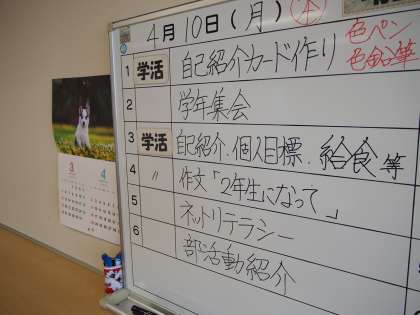 4月10日(月)
1 学活 自己紹介カード作り
色ペン
色鉛筆
2 学年集会
3 学活 自己紹介・個人目標・給食等
4 〃 作文「2年生になって」
5 ネットリテラシー
6 部活動紹介
3 4